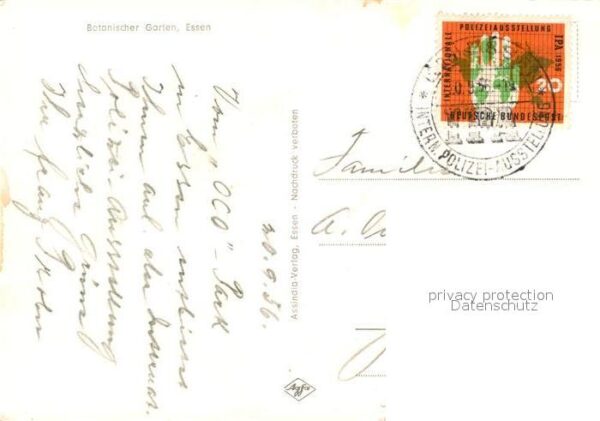 Botanischer Garten, Essen
20.9.56.
Vom "OCO"-Park
in Essen
Ihnen anl. der Internat.
Polizei-Ausstellung
herzliche Grüsse
Ihr Franz
Assindia-Verlag, Essen - Nachdruck verboten
Agfa
INTERNATIONALE
POLIZEIAUSSTELLUNG
IPA 1956
20
DEUTSCHE BUNDESPOST
INTERN. POLIZEI-AUSSTELLUNG
Familie
A.
privacy protection
Datenschutz